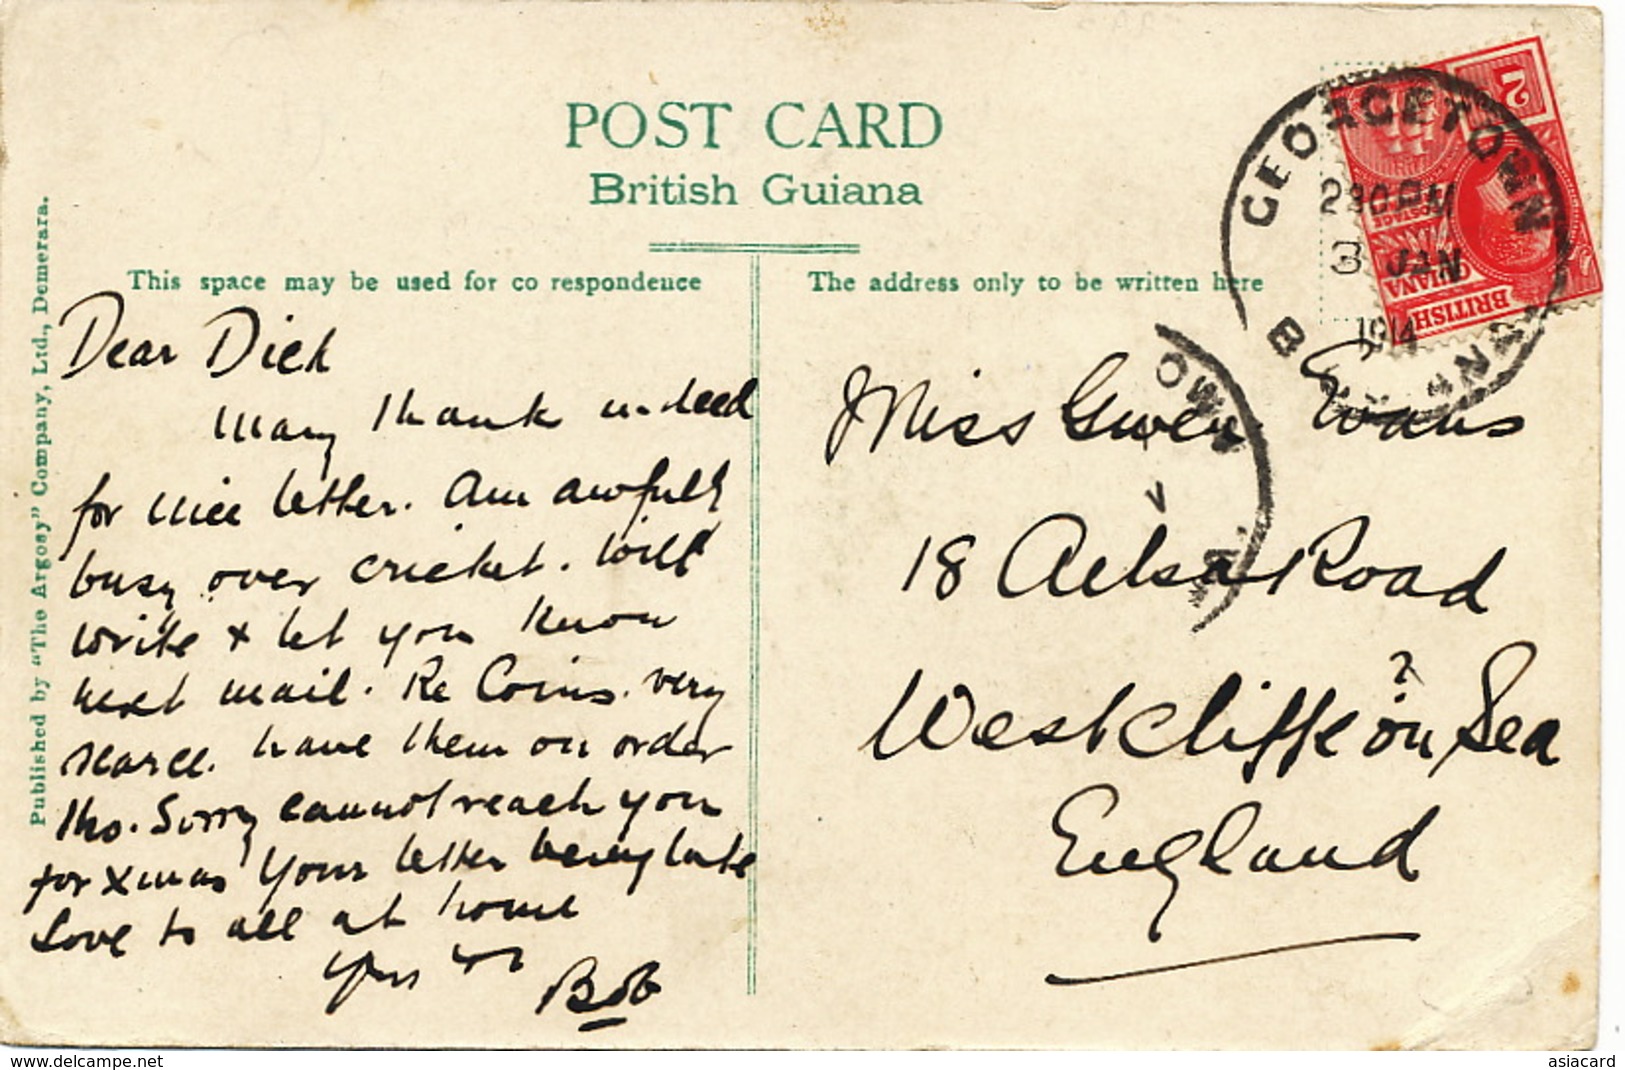 POST CARD
British Guiana
This space may be used for co respondence
The address only to be written here
Published by "The Argosy" Company, Ltd., Demerara.
Dear Dick
Many thank indeed
for nice letter. Am awfully
busy over cricket. Will
write + let you know
next mail. Re Coins. very
scarce. have them on order
tho. Sorry cannot reach you
for Xmas Your letter being late
Love to all at home
Yrs
Bob
Miss Gwen Evans
18 Ailsa Road
Westcliffe on Sea
?
England
GEORGETOWN
230 PM
3 JAN
1914
OWN
2
POSTAGE
BRITISH
GUIANA
www.delcampe.net
asiacard